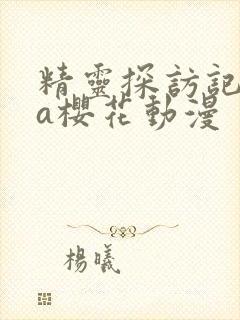 精靈探訪記
a櫻花動漫
楊曦